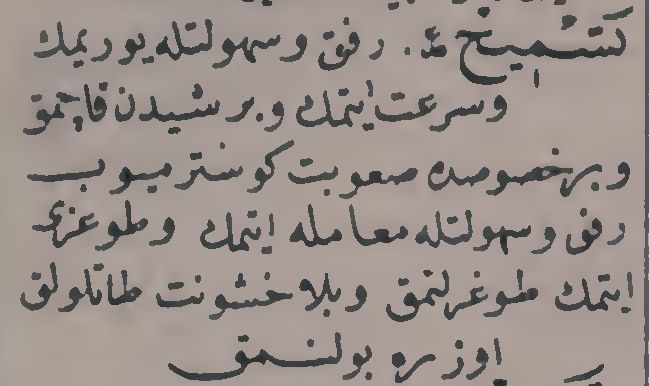 رفق و سهولتله يوريمك
و سرعت ايتمك و بر شيدن قاچمق
و بر خصوصده صعوبت كوسترميوب
رفق و سهولتله معامله ايتمك و طوغري
ايتمك طوغرلتمق و بلا خشونت طاتلولق
اوزره بولنمق